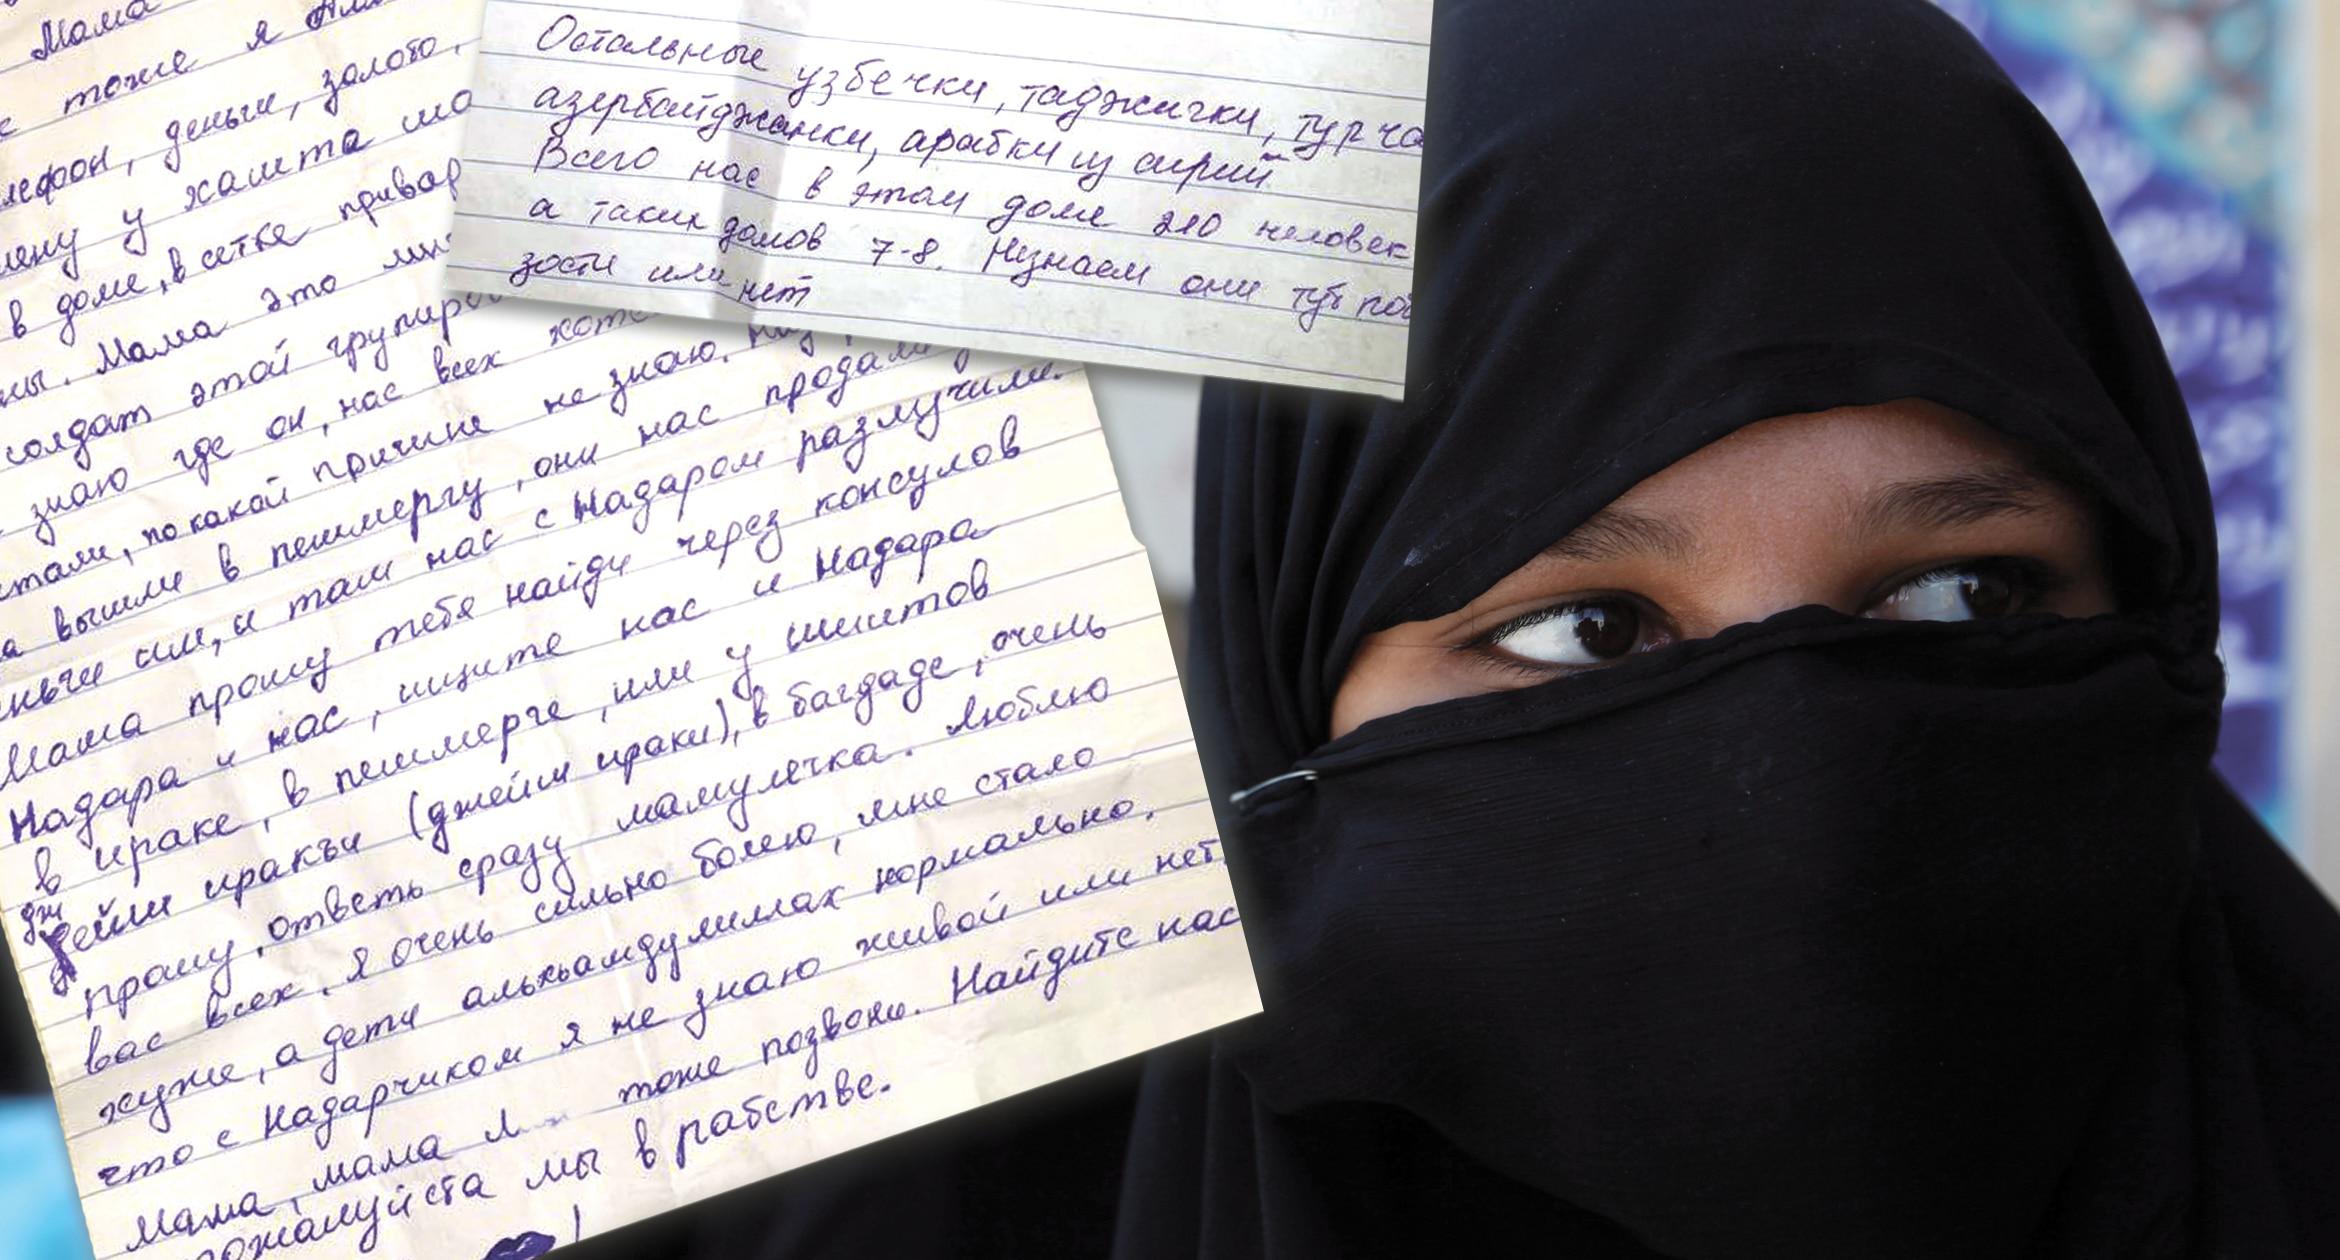 Мама
тоже я
лефон, деньги, золото,
лену у хашта
в доме, в сетке привар
ны. Мама это
солдат этой групиро
знаю где он, нас всех хоте
стали, по какой причине не знаю.
а вышли в пешмергу, они нас продали
ньги им, и там нас с Надаром разлучили.
Мама прошу тебя найди через консулов
Надара и нас, ищите нас и Надара
в ираке, в пешмерге, или у шиитов
джейш иракъи (джейш ираки), в багдаде, очень
прошу, ответь сразу мамулечка. Люблю
вас всех. Я очень сильно болею, мне стало
хуже, а дети альхьамдулиллах нормально.
что с Надарчиком я не знаю живой или нет.
Мама, мама тоже позвони. Найдите нас
пожалуйста мы в рабстве.
Остальные узбечки, таджички, турча
азербайджанки, арабки из сирий
Всего нас в этом доме 210 человек
а таких домов 7-8. Незнаем они тут
зости или нет